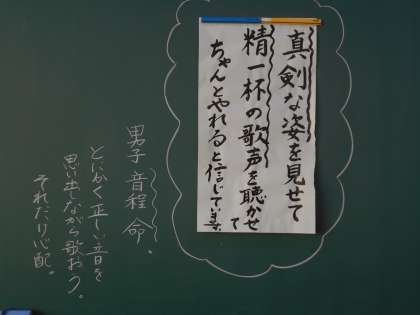 真剣な姿を見せて
精一杯の歌声を聴かせて
ちゃんとやれると信じています。
男子 音程 命。
とにかく正しい音を
思い出しながら歌おう。
それだけ心配。